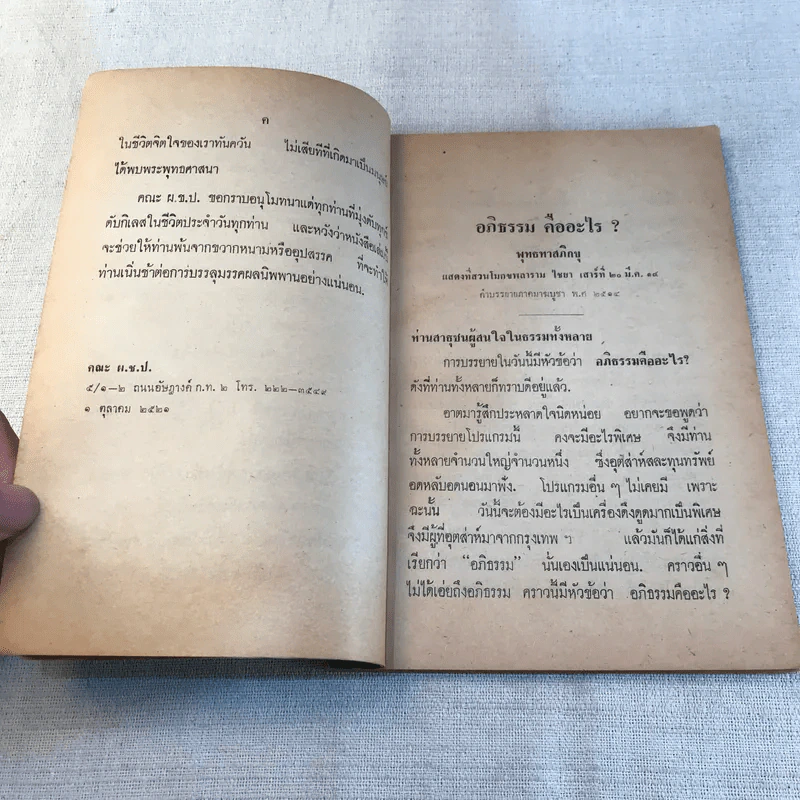 ค
ในชีวิตจิตใจของเราทันควัน ไม่เสียทีที่เกิดมาเป็นมนุษย์
ได้พบพระพุทธศาสนา
คณะ ผ.ช.ป. ขอกราบอนุโมทนาแด่ทุกท่านที่มุ่งดับทุกข์
ดับกิเลสในชีวิตประจำวันทุกท่าน และหวังว่าหนังสือเล่มนี้
จะช่วยให้ท่านพ้นจากขวากหนามหรืออุปสรรค ที่จะทำให้
ท่านเนิ่นช้าต่อการบรรลุมรรคผลนิพพานอย่างแน่นอน.
คณะ ผ.ช.ป.
๕/๑–๒ ถนนอัษฎางค์ ก.ท. ๒ โทร. ๒๒๒–๓๕๔๙
๑ ตุลาคม ๒๕๒๑
อภิธรรม คืออะไร ?
พุทธทาสภิกขุ
แสดงที่สวนโมกขพลาราม ไชยา เสาร์ที่ ๒๐ มี.ค. ๑๔
คำบรรยายภาคมาฆบูชา พ.ศ ๒๕๑๔
ท่านสาธุชนผู้สนใจในธรรมทั้งหลาย
การบรรยายในวันนี้มีหัวข้อว่า อภิธรรมคืออะไร?
ดังที่ท่านทั้งหลายก็ทราบดีอยู่แล้ว.
อาตมารู้สึกประหลาดใจนิดหน่อย อยากจะขอพูดว่า
การบรรยายโปรแกรมนี้ คงจะมีอะไรพิเศษ จึงมีท่าน
ทั้งหลายจำนวนใหญ่จำนวนหนึ่ง ซึ่งอุตส่าห์สละทุนทรัพย์
อดหลับอดนอนมาฟัง. โปรแกรมอื่น ๆ ไม่เคยมี เพราะ
ฉะนั้น วันนี้จะต้องมีอะไรเป็นเครื่องดึงดูดมากเป็นพิเศษ
จึงมีผู้ที่อุตส่าห์มาจากกรุงเทพ ฯ แล้วมันก็ได้แก่สิ่งที่
เรียกว่า “อภิธรรม” นั่นเองเป็นแน่นอน. คราวอื่น ๆ
ไม่ได้เอ่ยถึงอภิธรรม คราวนี้มีหัวข้อว่า อภิธรรมคืออะไร ?